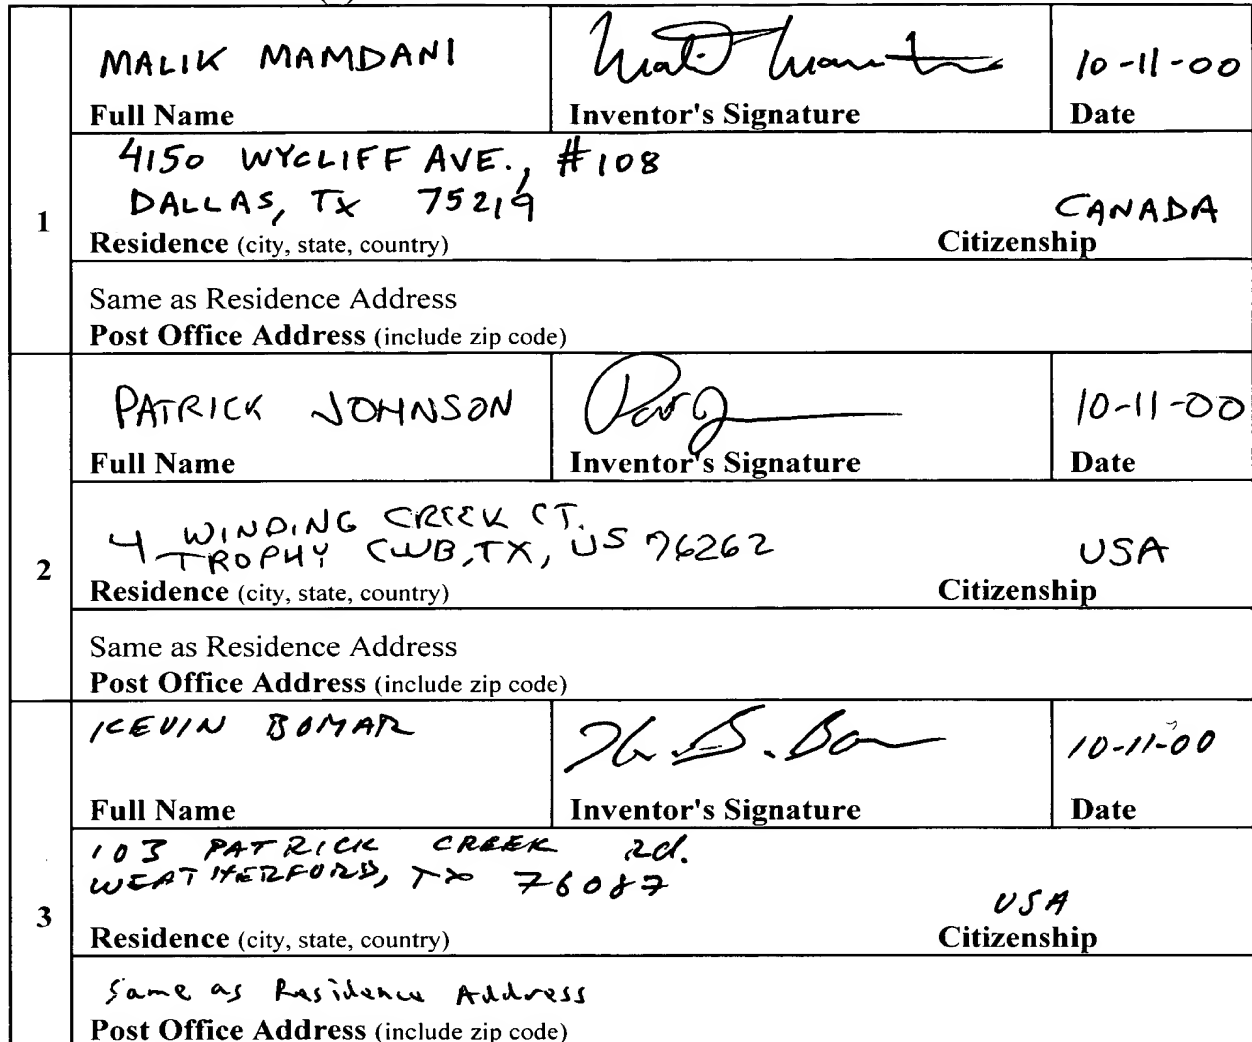 MALIK MAMDANI 10-11-00
Full Name Inventor's Signature Date
4150 WYCLIFF AVE., #108
DALLAS, TX 75219 CANADA
1
Residence (city, state, country) Citizenship
Same as Residence Address
Post Office Address (include zip code)
PATRICK JOHNSON 10-11-00
Full Name Inventor's Signature Date
4 WINDING CREEK CT.
TROPHY CLUB, TX, US 76262 USA
2
Residence (city, state, country) Citizenship
Same as Residence Address
Post Office Address (include zip code)
KEVIN BOMAR 10-11-00
Full Name Inventor's Signature Date
103 PATRICK CREEK Rd.
WEATHERFORD, TX 76087
USA
3
Residence (city, state, country) Citizenship
Same as Residence Address
Post Office Address (include zip code)